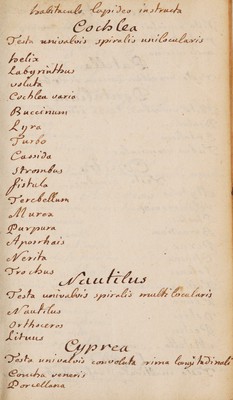 habitaculo lapideo instructa
Cochlea
Testa univalvis spiralis unilocularis
Helix
Labyrinthus
Voluta
Cochlea varia
Buccinum
Lyra
Turbo
Cassida
Strombus
Fistula
Terebellum
Murex
Purpura
Aporrhais
Nerita
Trochus
Nautilus
Testa univalvis spiralis multilocularis
Nautilus
Orthoceros
Lituus
Cyprea
Testa univalvis convoluta rima longitudinali
Concha veneris
Porcellana